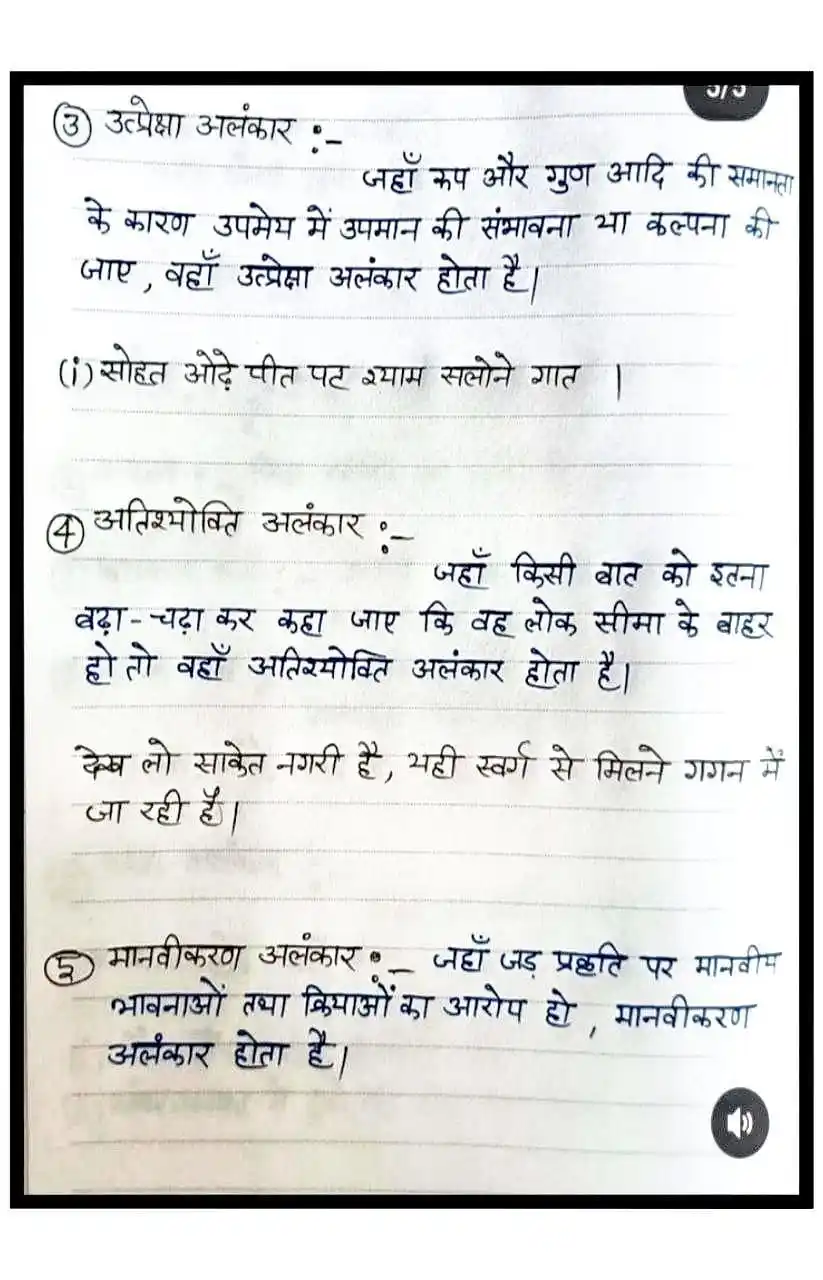 5/5
③ उत्प्रेक्षा अलंकार :-
जहाँ रूप और गुण आदि की समानता
के कारण उपमेय में उपमान की संभावना या कल्पना की
जाए, वहाँ उत्प्रेक्षा अलंकार होता है।
(i) सोहत ओढ़े पीत पट श्याम सलोने गात ।
④ अतिश्योक्ति अलंकार :-
जहाँ किसी बात को इतना
बढ़ा-चढ़ा कर कहा जाए कि वह लोक सीमा के बाहर
हो तो वहाँ अतिश्योक्ति अलंकार होता है।
देख लो साकेत नगरी है, यही स्वर्ग से मिलने गगन में
जा रही है।
⑤ मानवीकरण अलंकार :- जहाँ जड़ प्रकृति पर मानवीय
भावनाओं तथा क्रियाओं का आरोप हो, मानवीकरण
अलंकार होता है।